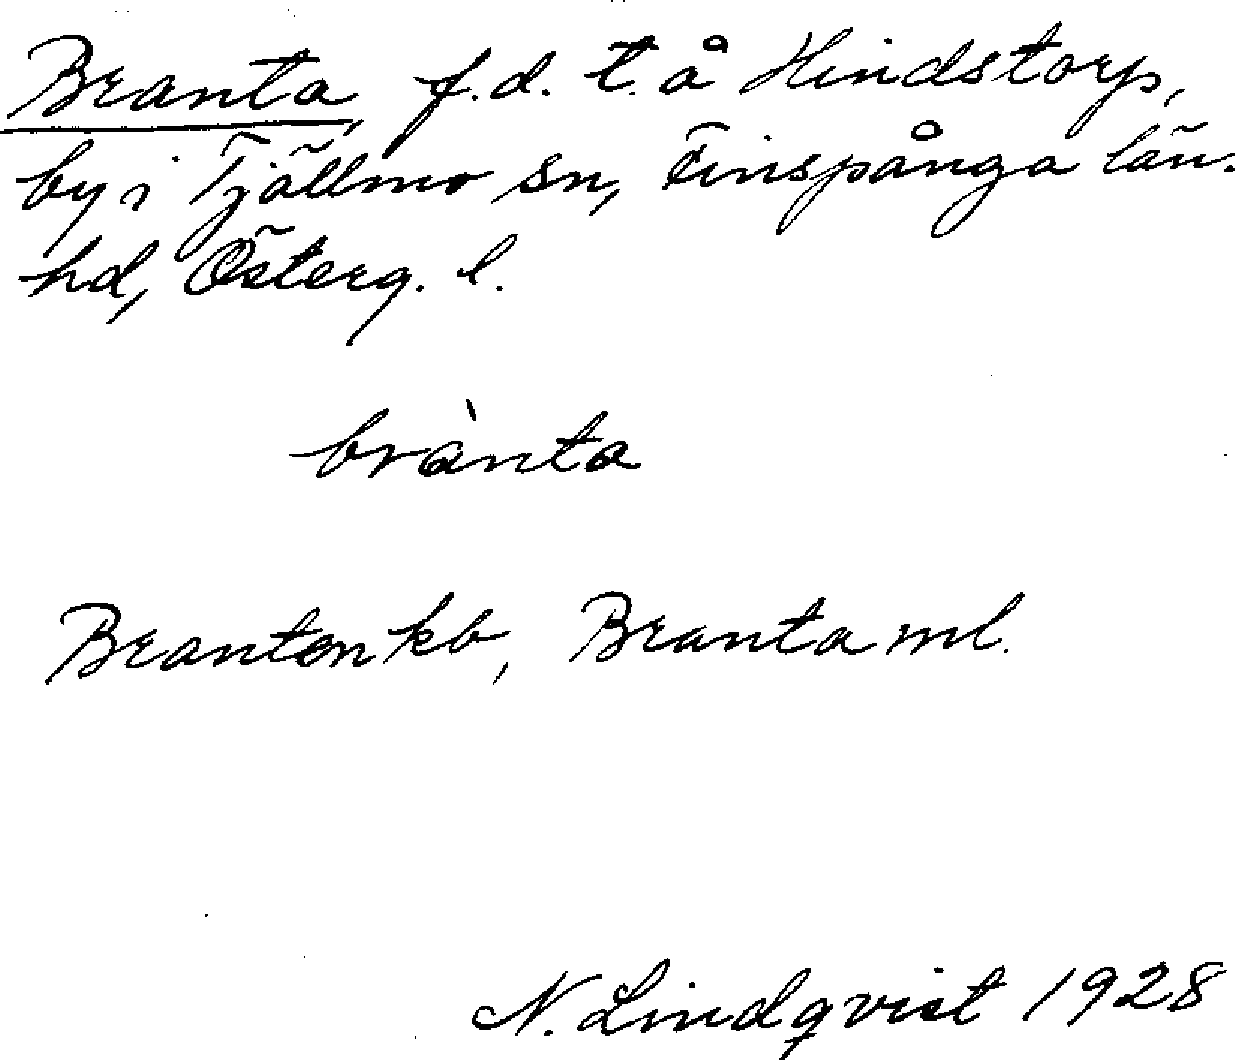 Branta, f.d. t. å Hindstorp,
by i Tjällmo sn, Finspånga län.
hd, Österg. l.
brànta
Branten kb, Branta ml.
N. Lindqvist 1928